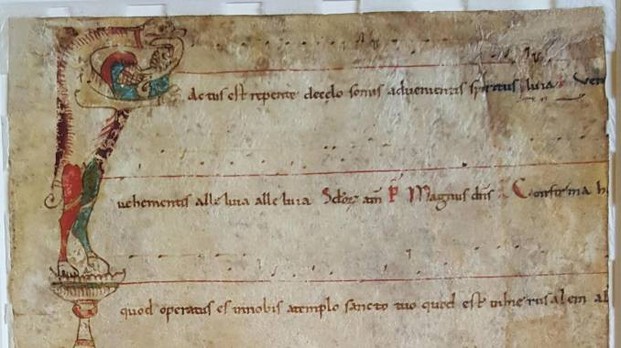 Factus est repente de cęlo sonus advenientis spiritus
vehementis alleluia alleluia Magnus dns Confirma h
quod operatus es innobis atemplo sancto tuo quod est inhierusalem al